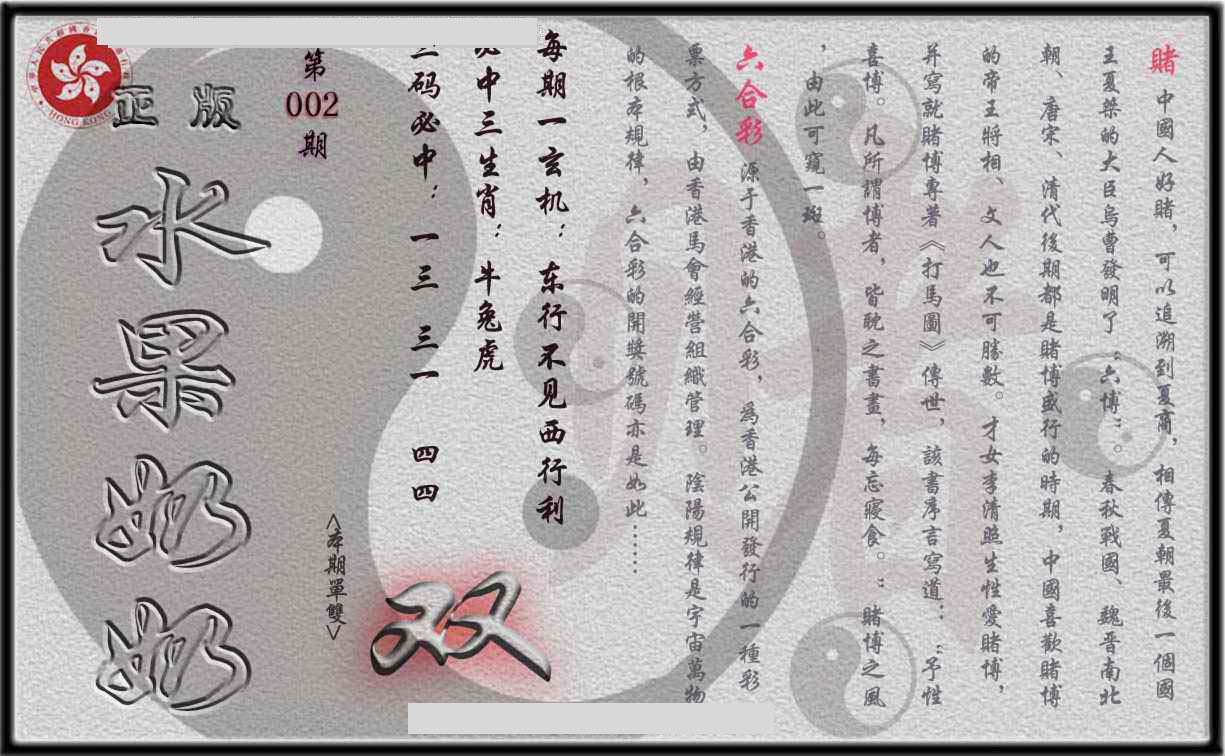 賭 中國人好賭，可以追溯到夏商，相傳夏朝最後一個國
王夏桀的大臣烏曹發明了“六博”。春秋戰國、魏晋南北
朝、唐宋、清代後期都是賭博盛行的時期，中國喜歡賭博
的帝王將相、文人也不可勝數。才女李清照生性愛賭博，
并寫就賭博專著《打馬圖》傳世，該書序言寫道：“予性
喜博。凡所謂博者，皆耽之書畫，每忘寢食。”賭博之風
，由此可窺一斑。
六合彩 源于香港的六合彩，爲香港公開發行的一種彩
票方式，由香港馬會經營組織管理。陰陽規律是宇宙萬物
的根本規律，六合彩的開獎號碼亦是如此……
每期一玄机：东行不见西行利
必中三生肖：牛兔虎
三码必中：一三 三一 四四
<本期單雙>
双
第
002
期
正版
水果奶奶
HONG KONG